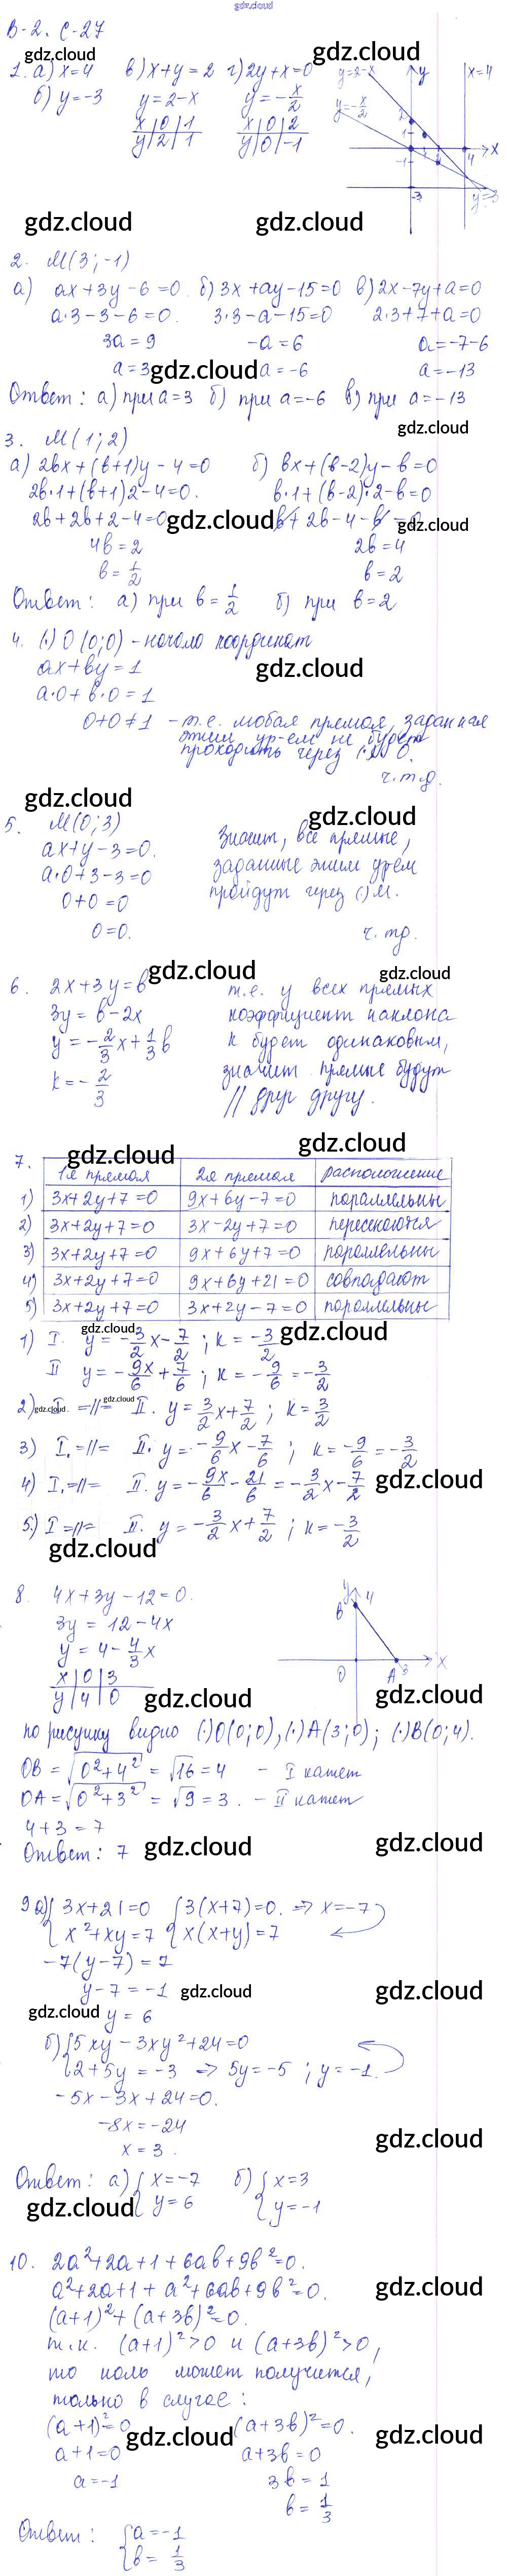 gdz.cloud
В-2. С-27
1. а) x=4 в) x+y=2 г) 2y+x=0
б) y=-3 y=2-x y=-x/2
x|0|1 x|0|2
y|2|1 y|0|-1
y=2-x y x=4
y=-x/2
1
-1 4 x
-3 y=-3
gdz.cloud
gdz.cloud gdz.cloud
2. M(3;-1)
а) ax+3y-6=0 б) 3x+ay-15=0 в) 2x-7y+a=0
a·3-3-6=0. 3·3-a-15=0 2·3+7+a=0
3a=9 -a=6 a=-7-6
a=3 a=-6 a=-13
gdz.cloud
Ответ: а) при a=3 б) при a=-6 в) при a=-13
gdz.cloud
3. M(1;2)
а) 2bx+(b+1)y-4=0 б) bx+(b-2)y-b=0
2b·1+(b+1)2-4=0. b·1+(b-2)·2-b=0
2b+2b+2-4=0 b+2b-4-b=0
gdz.cloud gdz.cloud
4b=2 2b=4
b=1/2 b=2
Ответ: а) при b=1/2 б) при b=2
4. (·) O(0;0) - начало координат
ax+by=1
gdz.cloud
a·0+b·0=1
0+0≠1 - т.е. любая прямая, заданная
этим ур-ем не будет
проходить через (·) O.
ч.т.д.
gdz.cloud gdz.cloud
5. M(0;3) Значит, все прямые,
ax+y-3=0. заданные этим ур-ем
a·0+3-3=0 пройдут через (·) M.
0+0=0
0=0. ч.тд.
gdz.cloud gdz.cloud
6. 2x+3y=b т.е. у всех прямых
3y=b-2x коэффициент наклона
y=-2/3x+1/3b k будет одинаковым,
k=-2/3 значит прямые будут
// друг другу.
gdz.cloud gdz.cloud
7. 1я прямая 2ая прямая расположение
1) 3x+2y+7=0 9x+6y-7=0 параллельны
2) 3x+2y+7=0 3x-2y+7=0 пересекаются
3) 3x+2y+7=0 9x+6y+7=0 параллельны
4) 3x+2y+7=0 9x+6y+21=0 совпадают
5) 3x+2y+7=0 3x+2y-7=0 параллельны
gdz.cloud gdz.cloud
1) I. y=-3/2x-7/2; k=-3/2
II y=-9x/6+7/6; k=-9/6=-3/2
gdz.cloud gdz.cloud
2) I. =//= II. y=3/2x+7/2; k=3/2
3) I. =//= II. y=-9/6x-7/6; k=-9/6=-3/2
4) I. =//= II. y=-9x/6-21/6=-3/2x-7/2
gdz.cloud
5.) I =//= II. y=-3/2x+7/2; k=-3/2
gdz.cloud
8. 4x+3y-12=0.
3y=12-4x
y=4-4/3x
x|0|3
y|4|0
y 4
B
O A 3 x
gdz.cloud gdz.cloud
по рисунку видно (·)O(0;0), (·)A(3;0); (·)B(0;4).
OB=√0²+4²=√16=4 - I катет
OA=√0²+3²=√9=3. - II катет
4+3=7
Ответ: 7
gdz.cloud gdz.cloud
9 а) {3x+21=0 {3(x+7)=0. => x=-7
x²+xy=7 x(x+y)=7
-7(y-7)=7
y-7=-1
gdz.cloud gdz.cloud
gdz.cloud
y=6
б) {5xy-3xy²+24=0
2+5y=-3 => 5y=-5; y=-1.
-5x-3x+24=0.
-8x=-24
gdz.cloud
x=3.
Ответ: а) {x=-7 б) {x=3
y=6 y=-1
gdz.cloud gdz.cloud
10. 2a²+2a+1+6ab+9b²=0.
a²+2a+1+a²+6ab+9b²=0.
gdz.cloud
(a+1)²+(a+3b)²=0.
т.к. (a+1)²>0 и (a+3b)²>0,
то ноль может получится,
только в случае:
(a+1)²=0 (a+3b)²=0.
gdz.cloud gdz.cloud
a+1=0 a+3b=0
a=-1 3b=1
b=1/3
Ответ: {a=-1
b=1/3